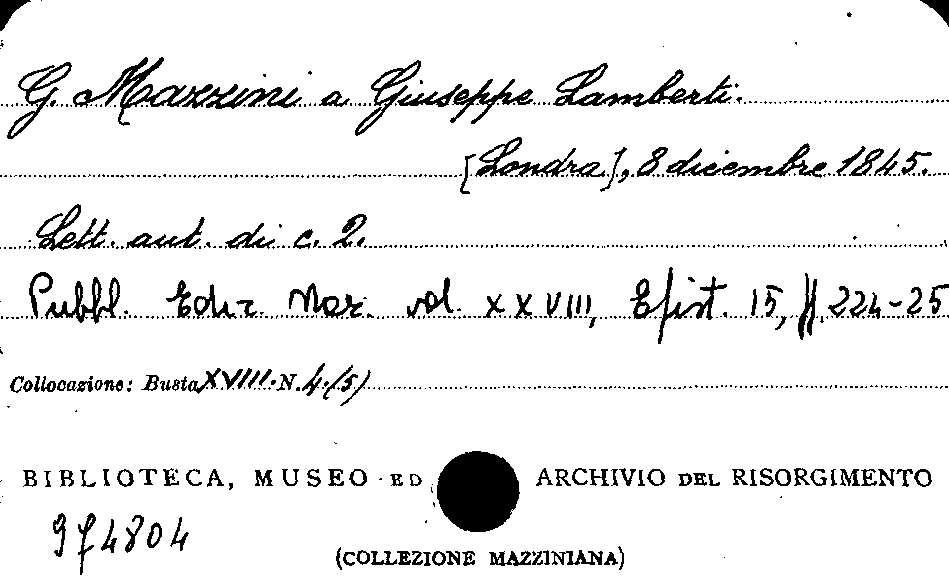 G. Mazzini a Giuseppe Lamberti.
[Londra], 8 dicembre 1845.
Lett. aut. di c. 2.
Pubbl. Ediz. Naz. vol. XXVIII, Epist. 15, pp. 224-25
Collocazione: Busta XVIII. N. 4. (5)
BIBLIOTECA, MUSEO ED ARCHIVIO DEL RISORGIMENTO
974804
(COLLEZIONE MAZZINIANA)